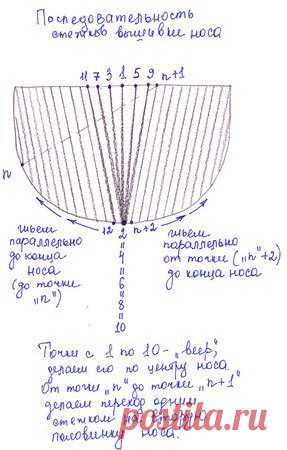 Последовательность
стежков вышивки носа
11 7 3 1 5 9 n+1
n
12 2 n+2
"
4
"
6
"
8
"
10
шьем
параллельно
до конца
носа
(до точки
„n")
шьем
параллельно
от точки („n"+2)
до конца носа
Точки с 1 по 10 - „веер",
делаем его по центру носа.
От точки „n" до точки „n+1"
делаем переход одним
стежком на вторую
половинку носа.
postila.ru